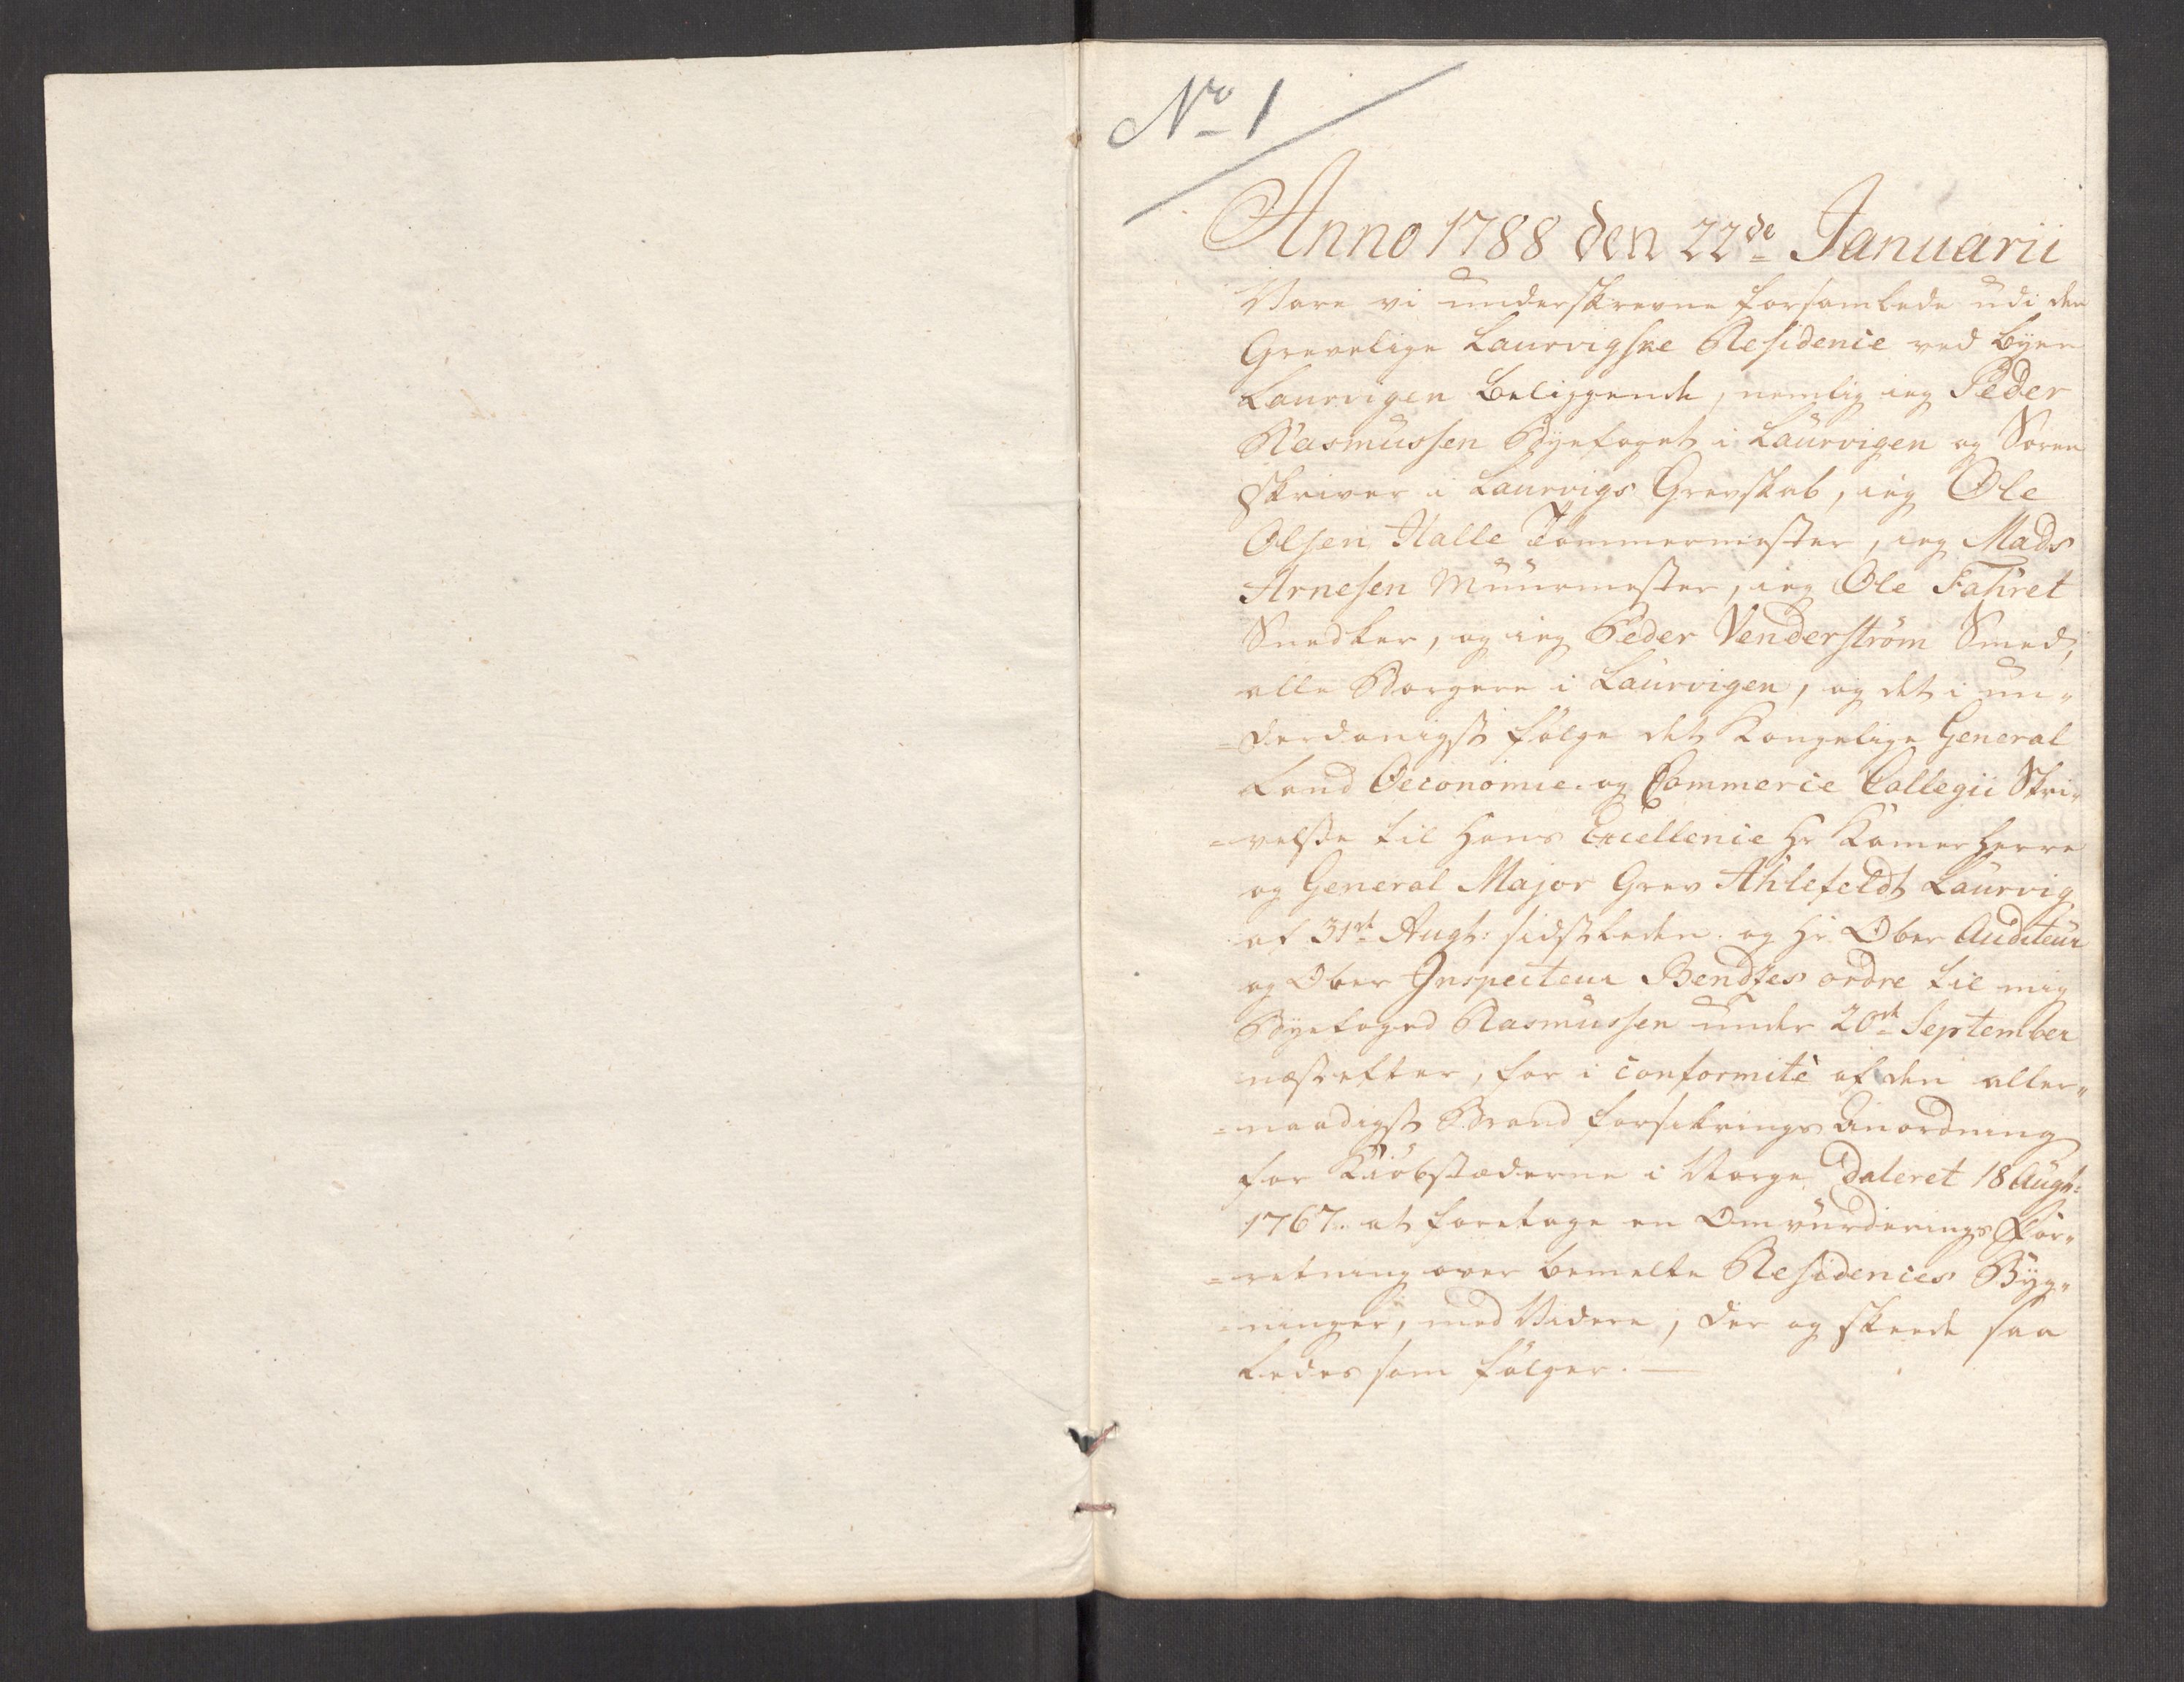 No 1
Anno 1788 den 22de Januarii
Vare vi underskrevne forsamlede udi den
Grevelige Laurvigske Residence ved byen
Laurvigen beliggende, nemlig ieg Peder
Rasmussen Byefoget i Laurvigen og Soren
skriver i Laurvigs Grevskab, ieg Ole
Olsen Halle Tømmermester, ieg Mads
Arnesen Muurmester, ieg Ole Fahret
Snedker, og ieg Peder Venderstrøm Smed,
alle Borgere i Laurvigen, og det i un„
=derdanigst følge det Kongelige General
Land Oeconomie- og Commerce Collegii Skri„
=velse til Hans Excellence Hr Kamerherre
og General Major Grev Ahlefeldt Laurvig
af 31te Augt: sidstleden og Hr Ober Auditeur
og Ober Inspecteur Bendtes ordre til mig
Byefoged Rasmussen under 20de September
næstefter, for i conformitè af den aller„
=naadigst Brand forsikrings Anordning
for Kiøbstæderne i Norge dateret 18 Augt:
1767. at foretage en Omvurderings For„
=retning over bemelte Residences Byg„
=ninger, med Videre, der og skeede saa
ledes som følger. —